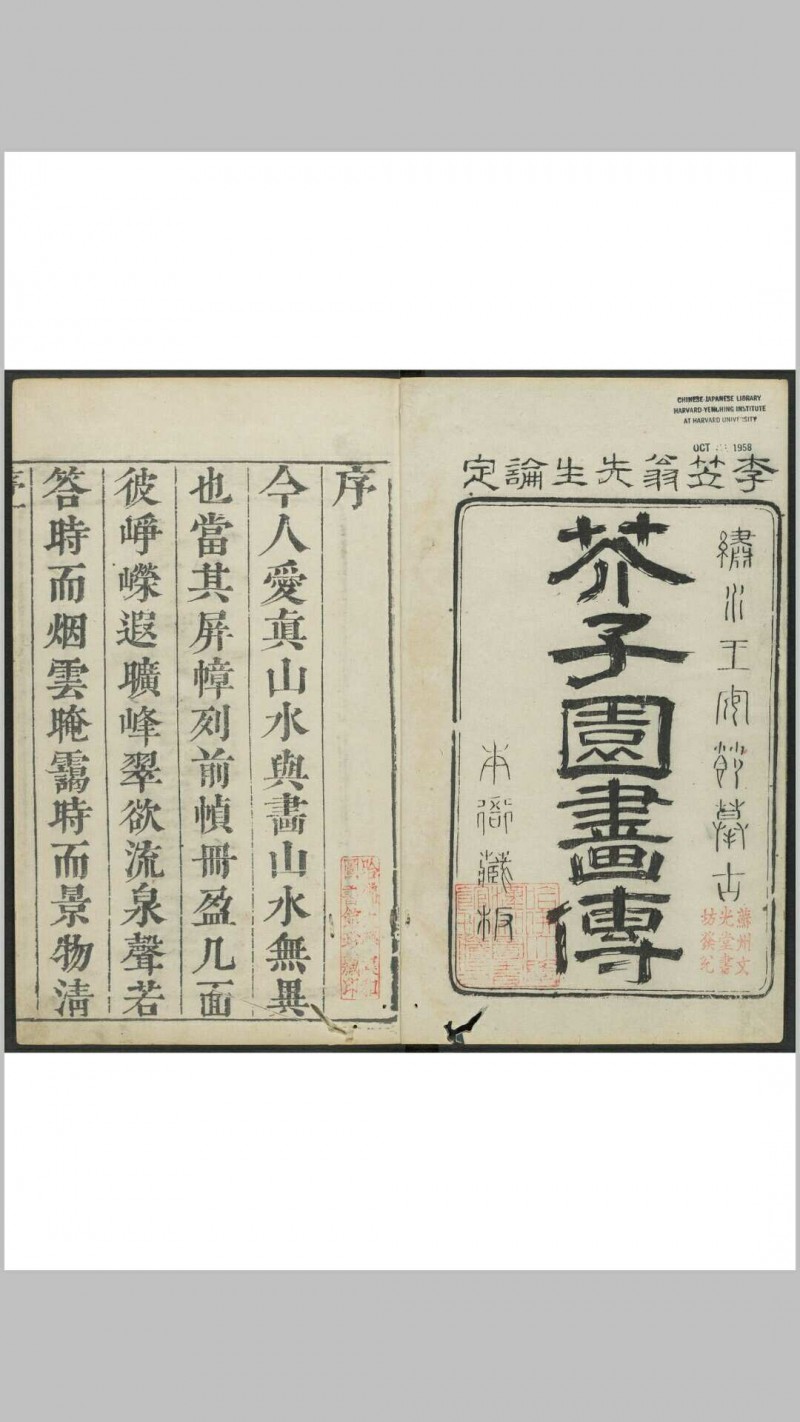 CHINESE-JAPANESE LIBRARY
HARVARD-YENCHING INSTITUTE
AT HARVARD UNIVERSITY
OCT 1958
李笠翁先生論定
繡水王安節摹古
芥子園畫傳
本衙藏板
蘇州文
光堂書
坊發兌
序
今人愛眞山水與畵山水無異
也當其屏幛列前幀冊盈几面
彼崢嶸遐曠峰翠欲流泉聲若
答時而烟雲晻靄時而景物淸